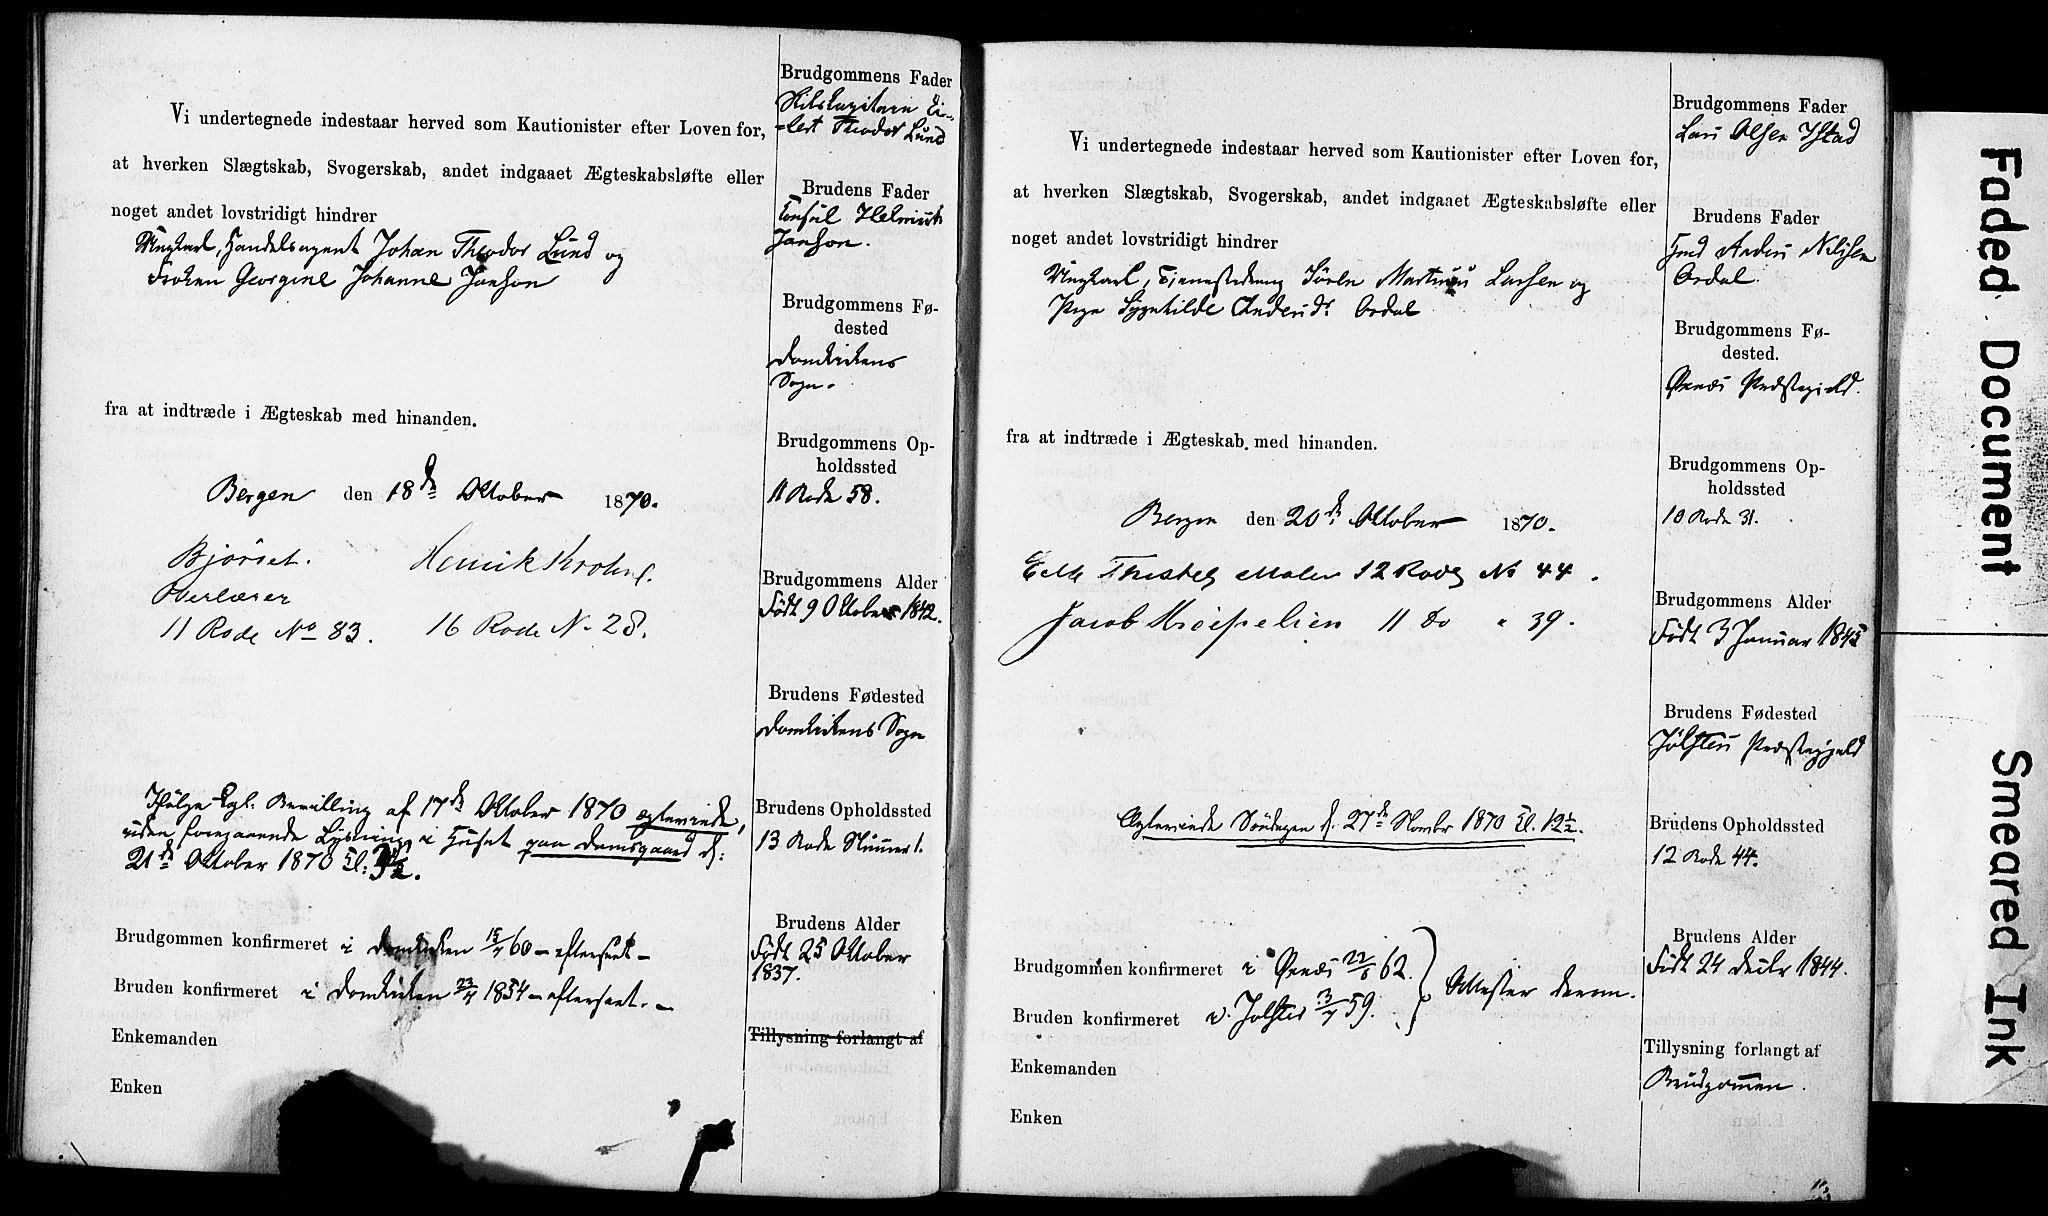 Vi undertegnede indestaar herved som Kautionister efter Loven for,
at hverken Slægtskab, Svogerskab, andet indgaaet Ægteskabsløfte eller
noget andet lovstridigt hindrer
Ungkarl, Handelsagent Johan Theodor Lund og
Frøken Georgine Johanne Janson
fra at indtræde i Ægteskab med hinanden.
Bergen den 18de Oktober 1870.
Bjørset. Henrik Krohn.
Overlærer
11 Rode No 83. 16 Rode N. 28.
Ifølge Kgl. Bevilling af 17de Oktober 1870 ægteviede,
uden foregaaende Lysning i Huset paa Damsgaard d:
21de Oktober 1870 Kl:
Brudgommen konfirmeret i Domkirken 15/4 60 – efterseet –
Bruden konfirmeret i Domkirken 23/4 1854 – efterseet. –
Enkemanden
Enken
Brudgommens Fader
Skibskapitain Ei-
-lert Theodor Lund
Brudens Fader
Konsul Helmich
Janson.
Brudgommens Fø-
dested
Domkirkens
Sogn.
Brudgommens Op-
holdssted
11 Rode 58.
Brudgommens Alder
Født 9 Oktober 1842.
Brudens Fødested
Domkirkens Sogn
Brudens Opholdssted
13 Rode Nummer 1.
Brudens Alder
Født 25 Oktober
1837.
Tillysning forlangt af
Vi undertegnede indestaar herved som Kautionister efter Loven for,
at hverken Slægtskab, Svogerskab, andet indgaaet Ægteskabsløfte eller
noget andet lovstridigt hindrer
Ungkarl, Tjenestedreng Sören Martinus Larsen og
Pige Sygnhilde Andersdr Ordal
fra at indtræde i Ægteskab med hinanden.
Bergen den 20de Oktober 1870.
Thistel Maler 12 Rode No 44.
Jacob 11 Do " 39.
Ægteviede Søndagen d. 27de Novbr 1870 Kl. 12½.
Brudgommen konfirmeret i 62. } Attester derom.
Bruden konfirmeret i Jolster 3/7 59.
Enkemanden
Enken
Brudgommens Fader
Lars Olsen Ystad
Brudens Fader
Gmd Anders Nilsen
Ordal.
Brudgommens Fø-
dested.
Præstegjeld.
Brudgommens Op-
holdssted
10 Rode 31.
Brudgommens Alder
Født 3 Januar 1845
Brudens Fødested
Jölsters Præstegjeld
Brudens Opholdssted
12 Rode 44.
Brudens Alder
Født 24 Decbr 1844.
Tillysning forlangt af
Brudgommen.
Faded Document Smeared Ink